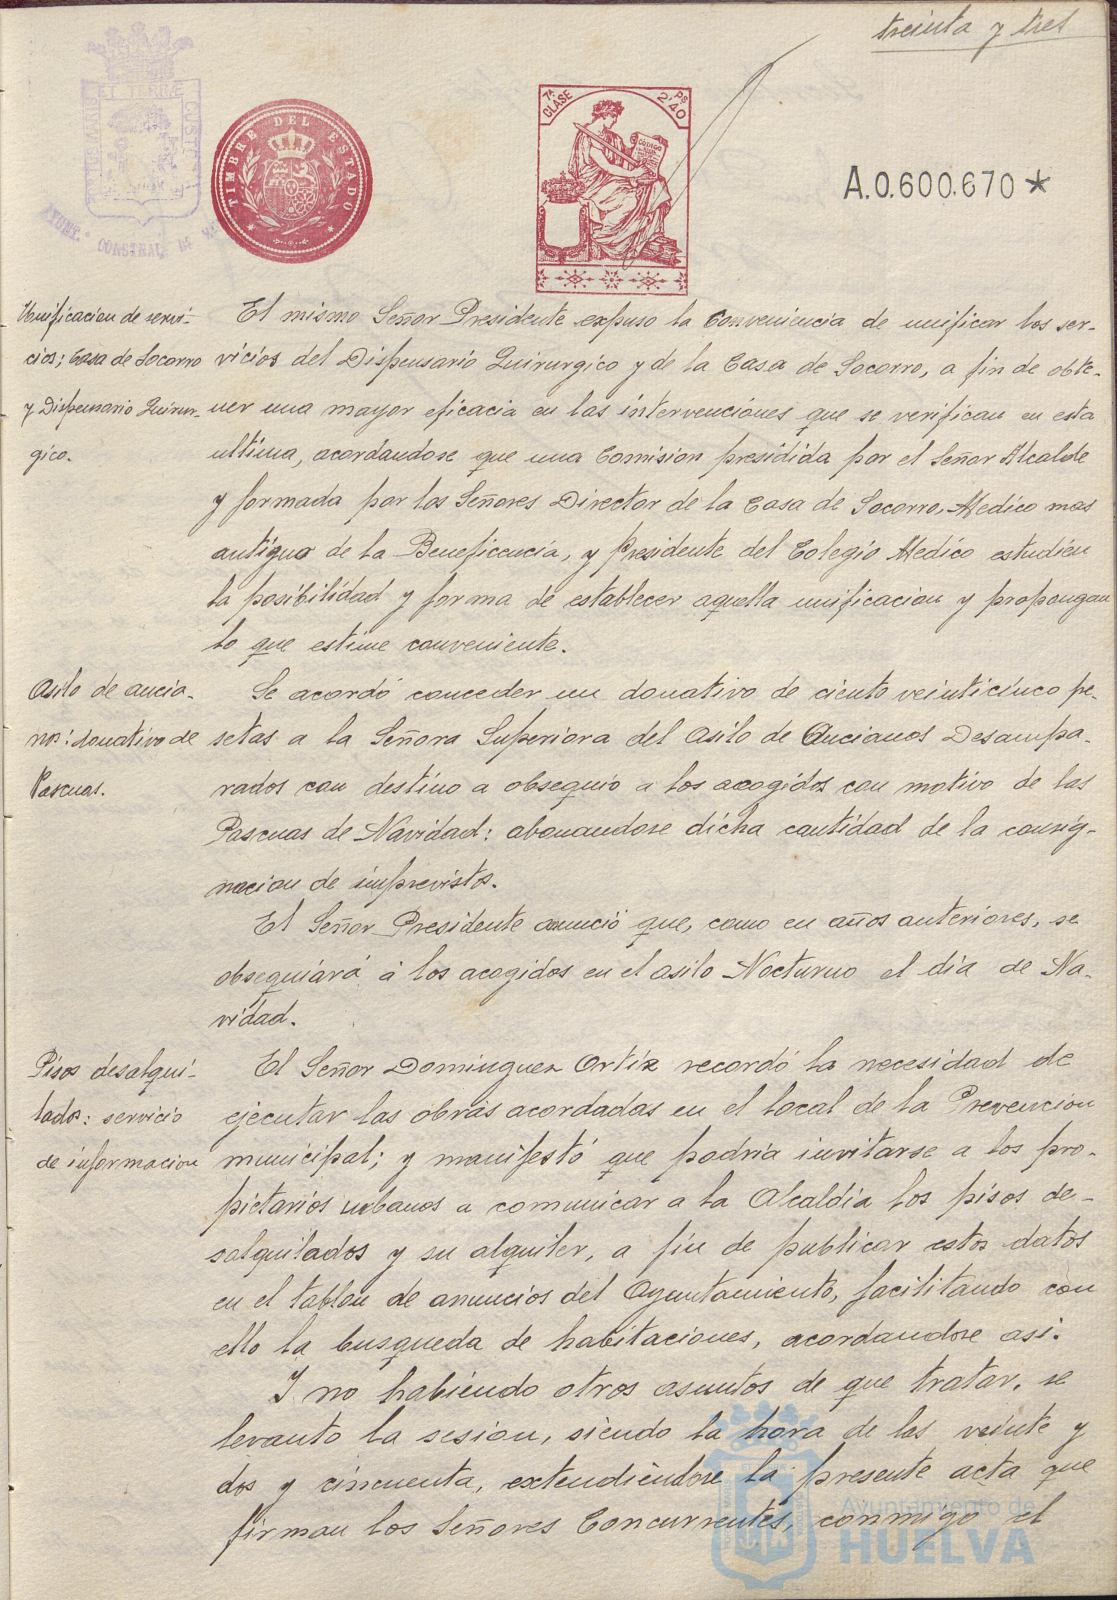 treinta y tres
PORTUS MARIS ET TERRÆ CUSTODIA
AYUNT.º CONSTNAL DE
TIMBRE DEL ESTADO
7ª CLASE
2'40 PS
CODIGO
A.0.600.670*
Unificacion de servi-
cios; Casa de Socorro
y Dispensario Quirur-
gico.
El mismo Señor Presidente expuso la conveniencia de unificar los ser-
vicios del Dispensario Quirurgico y de la Casa de Socorro, a fin de obte-
ner una mayor eficacia en las intervenciones que se verifican en esta
ultima, acordandose que una Comision presidida por el Señor Alcalde
y formada por los Señores Director de la Casa de Socorro, Medico mas
antiguo de la Beneficencia, y Presidente del Colegio Medico estudien
la posibilidad y forma de establecer aquella unificacion y propongan
lo que estime conveniente.
Asilo de ancia-
nos: donativo de
Pascuas.
Se acordó conceder un donativo de ciento veinticinco pe-
setas a la Señora Superiora del Asilo de Ancianos Desampa-
rados con destino a obsequio a los acogidos con motivo de las
Pascuas de Navidad: abonandose dicha cantidad de la consig-
nacion de imprevistos.
El Señor Presidente anunció que, como en años anteriores, se
obsequiará á los acogidos en el asilo Nocturno el dia de Na-
vidad.
Pisos desalqui-
lados: servicio
de informacion
El Señor Dominguez Ortiz recordó la necesidad de
ejecutar las obras acordadas en el local de la Prevencion
municipal; y manifestó que podria invitarse a los pro-
pietarios urbanos a comunicar a la Alcaldia los pisos de-
salquilados y su alquiler, a fin de publicar estos datos
en el tablon de anuncios del Ayuntamiento, facilitando con
ello la busqueda de habitaciones, acordandose asi.
Y no habiendo otros asuntos de que tratar, se
levanto la sesion, siendo la hora de las veinte y
dos y cincuenta, extendiendose la presente acta que
firman los Señores Concurrentes, conmigo el
Ayuntamiento de
HUELVA